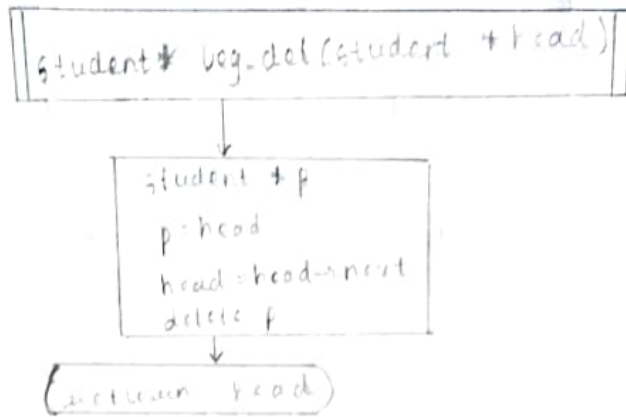 student* beg_del(student *head)
student *p
p=head
head=head->next
delete p
return head